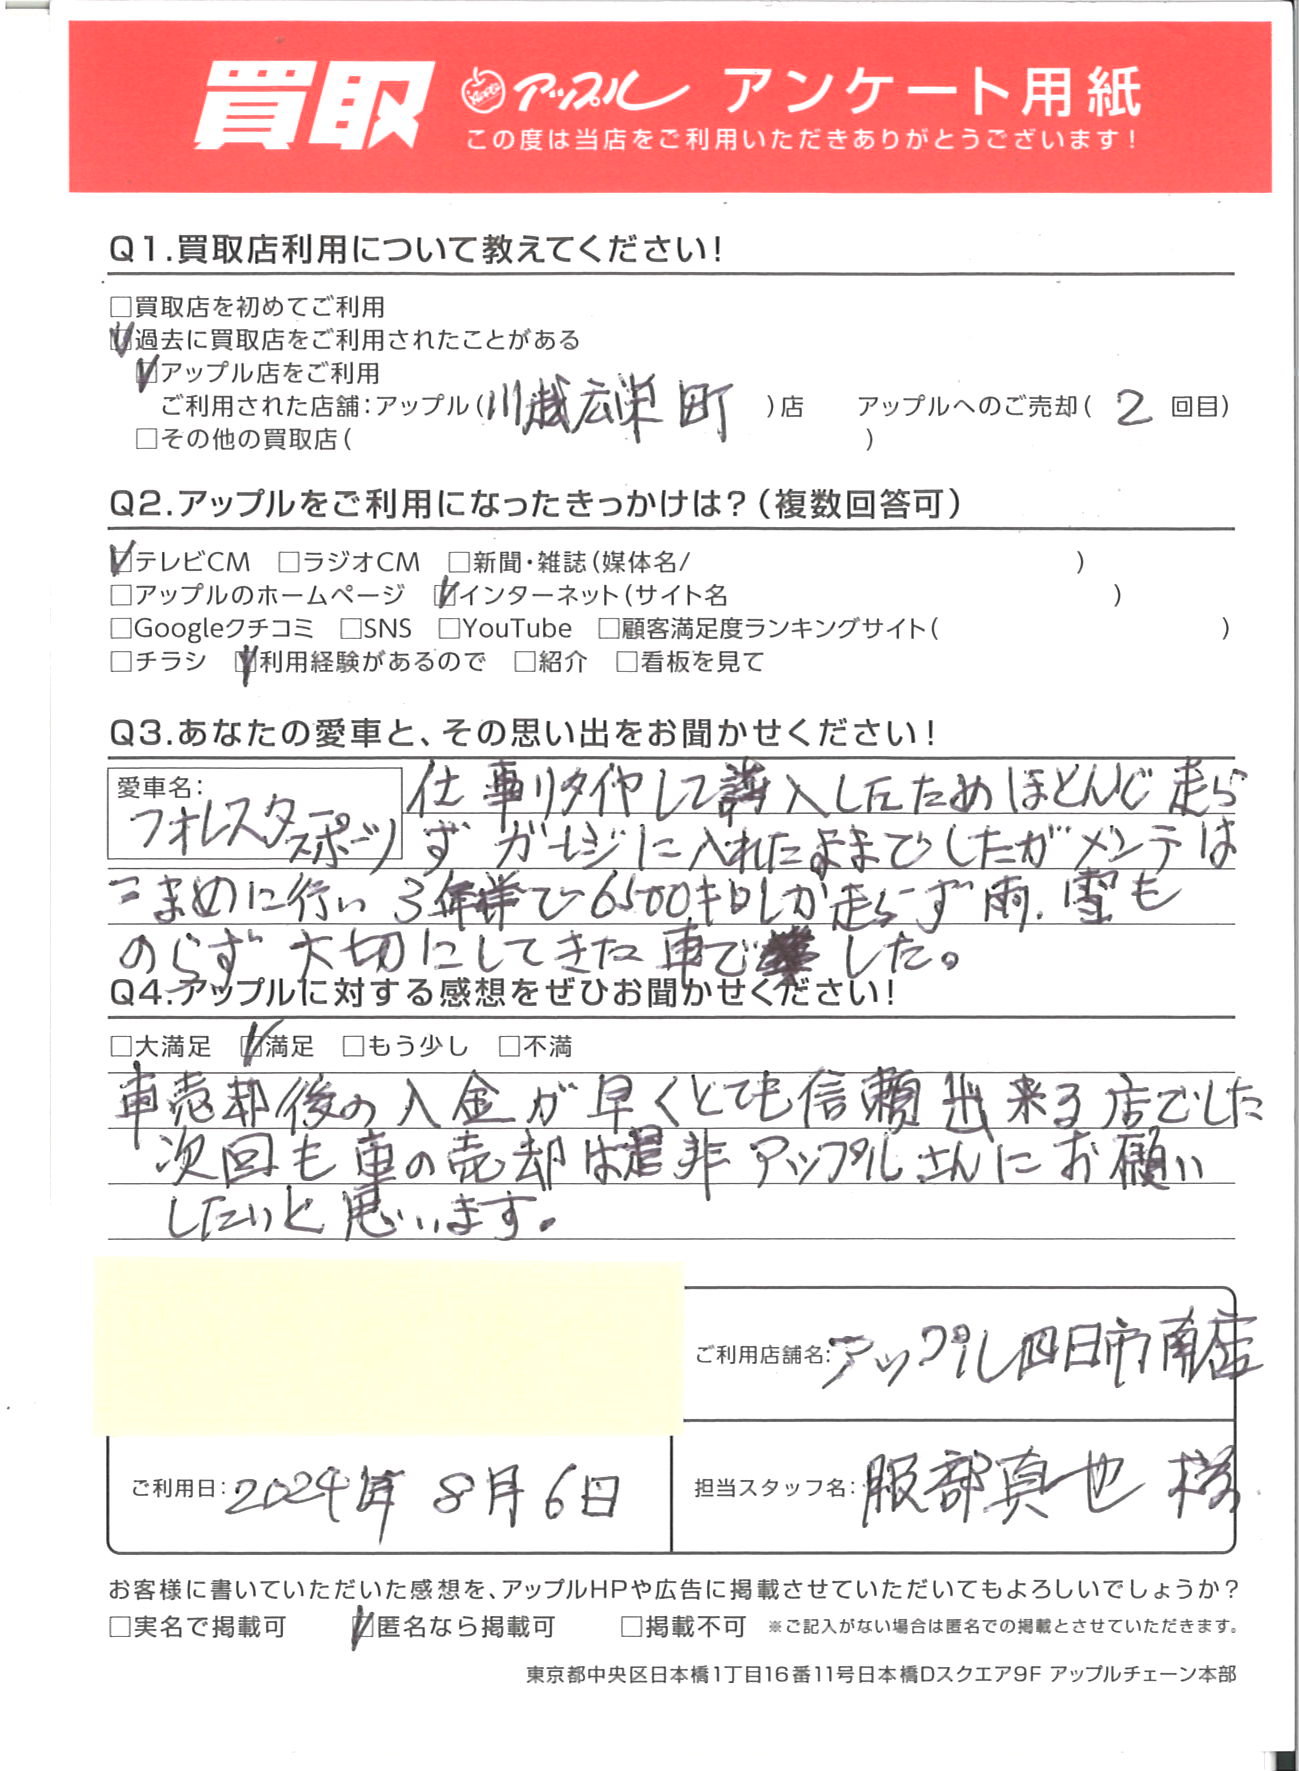 買取 アップル アンケート用紙
この度は当店をご利用いただきありがとうございます!
Q1.買取店利用について教えてください!
□買取店を初めてご利用
☑過去に買取店をご利用されたことがある
☑アップル店をご利用
ご利用された店舗:アップル(川越広栄町)店 アップルへのご売却(2回目)
□その他の買取店( )
Q2.アップルをご利用になったきっかけは?(複数回答可)
☑テレビCM □ラジオCM □新聞・雑誌(媒体名/ )
□アップルのホームページ ☑インターネット(サイト名 )
□Googleクチコミ □SNS □YouTube □顧客満足度ランキングサイト( )
□チラシ ☑利用経験があるので □紹介 □看板を見て
Q3.あなたの愛車と、その思い出をお聞かせください!
愛車名:
フォレスタースポーツ
仕事リタイヤして購入したためほとんど走ら
ずガレージに入れたままでしたがメンテは
こまめに行い3年半で6500キロしか走らず雨、雪も
のらず大切にしてきた車でした。
Q4.アップルに対する感想をぜひお聞かせください!
□大満足 ☑満足 □もう少し □不満
車売却後の入金が早くとても信頼出来る店でした
次回も車の売却は是非アップルさんにお願い
したいと思います。
ご利用店舗名:アップル四日市南店
ご利用日:2024年8月6日
担当スタッフ名:服部真也 様
お客様に書いていただいた感想を、アップルHPや広告に掲載させていただいてもよろしいでしょうか?
□実名で掲載可 ☑匿名なら掲載可 □掲載不可 ※ご記入がない場合は匿名での掲載とさせていただきます。
東京都中央区日本橋1丁目16番11号日本橋Dスクエア9F アップルチェーン本部